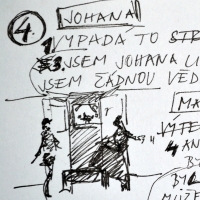 4. JOHANA
1 VYPADÁ TO
3 JSEM JOHANA LI
JSEM ŽÁDNOU VĚD
MA
VÝTE
4 AN
BY
BYL
MŮŽE